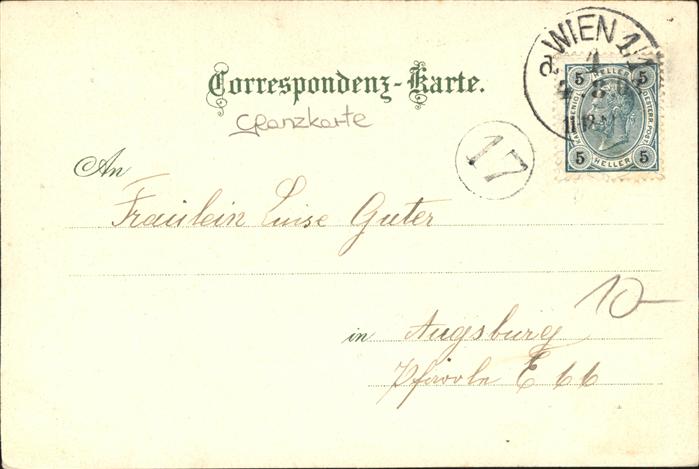 WIEN 1/1
5 HELLER 5
KAIS. KÖNIGL. OESTERR. POST
5 HELLER 5
Correspondenz-Karte.
Glanzkarte
17
An
Fräulein Luise Guter
10-
in Augsburg
E 66